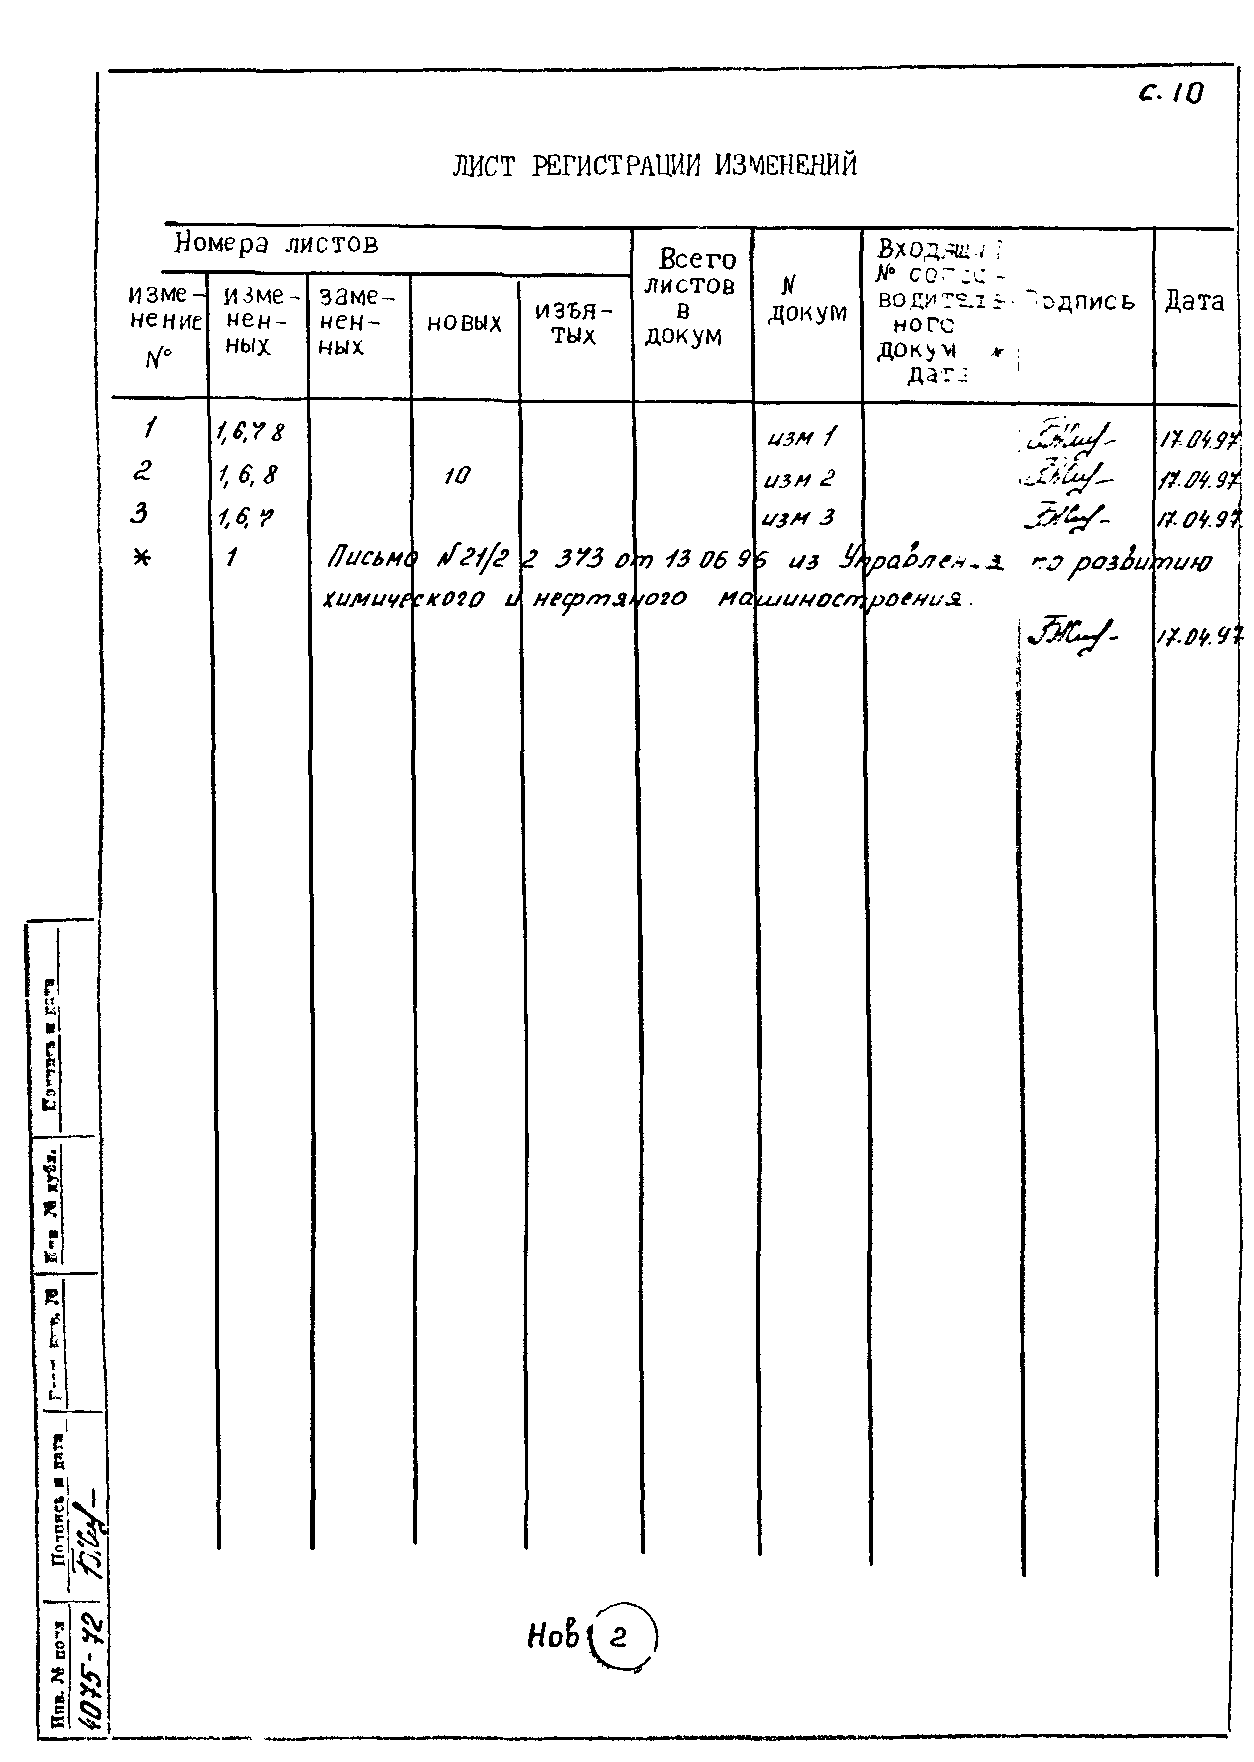 с. 10
ЛИСТ РЕГИСТРАЦИИ ИЗМЕНЕНИЙ
Номера листов
изме-
нение
№
изме-
нен-
ных
заме-
нен-
ных
новых
изъя-
тых
Всего
листов
в
докум
N
докум
Входящ
№ сопро-
водитель-
ного
докум
дата
Подпись
Дата
1 1,6,7 8 изм 1 17.04.97
2 1,6,8 10 изм 2 17.04.97
3 1,6,7 изм 3 17.04.97
* 1 Письмо N21/2 2 373 от 13 06 96 из Управления по развитию
химического и нефтяного машиностроения.
17.04.97
Нов 2
Подпись и дата
Инв. № дубл.
инв. №
Подпись и дата
Инв. № подл
4075-72